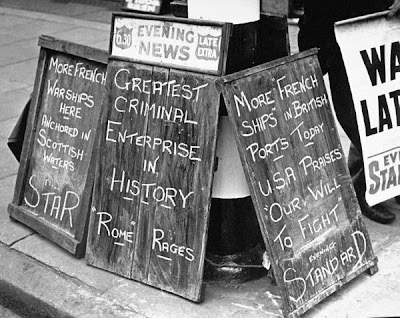 MORE FRENCH
WARSHIPS
HERE
ANCHORED IN
SCOTTISH
WATERS
STAR
6.30
EVENING
NEWS
LATE
EXTRA
GREATEST
CRIMINAL
ENTERPRISE
IN
HISTORY
"ROME" RAGES
MORE FRENCH
SHIPS IN BRITISH
PORTS TODAY
USA PRAISES
"OUR WILL
TO FIGHT"
EVENING
STANDARD
WA
LAT
EV
STAN